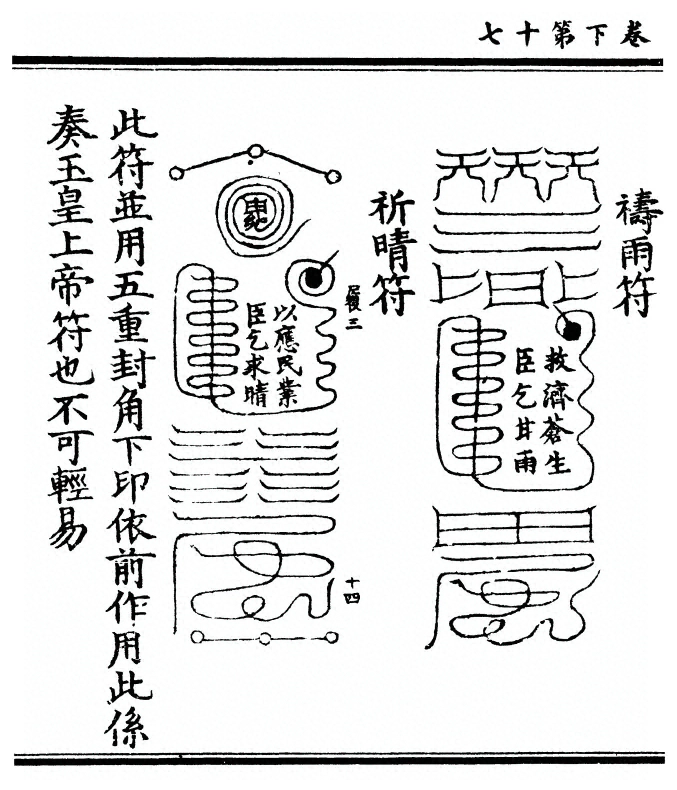 卷下第十七
禱雨符
救濟蒼生
臣乞甘雨
祈晴符
三
十四
以應民業
臣乞求晴
此符並用五重封角下印依前作用此係
奏玉皇上帝符也不可輕易